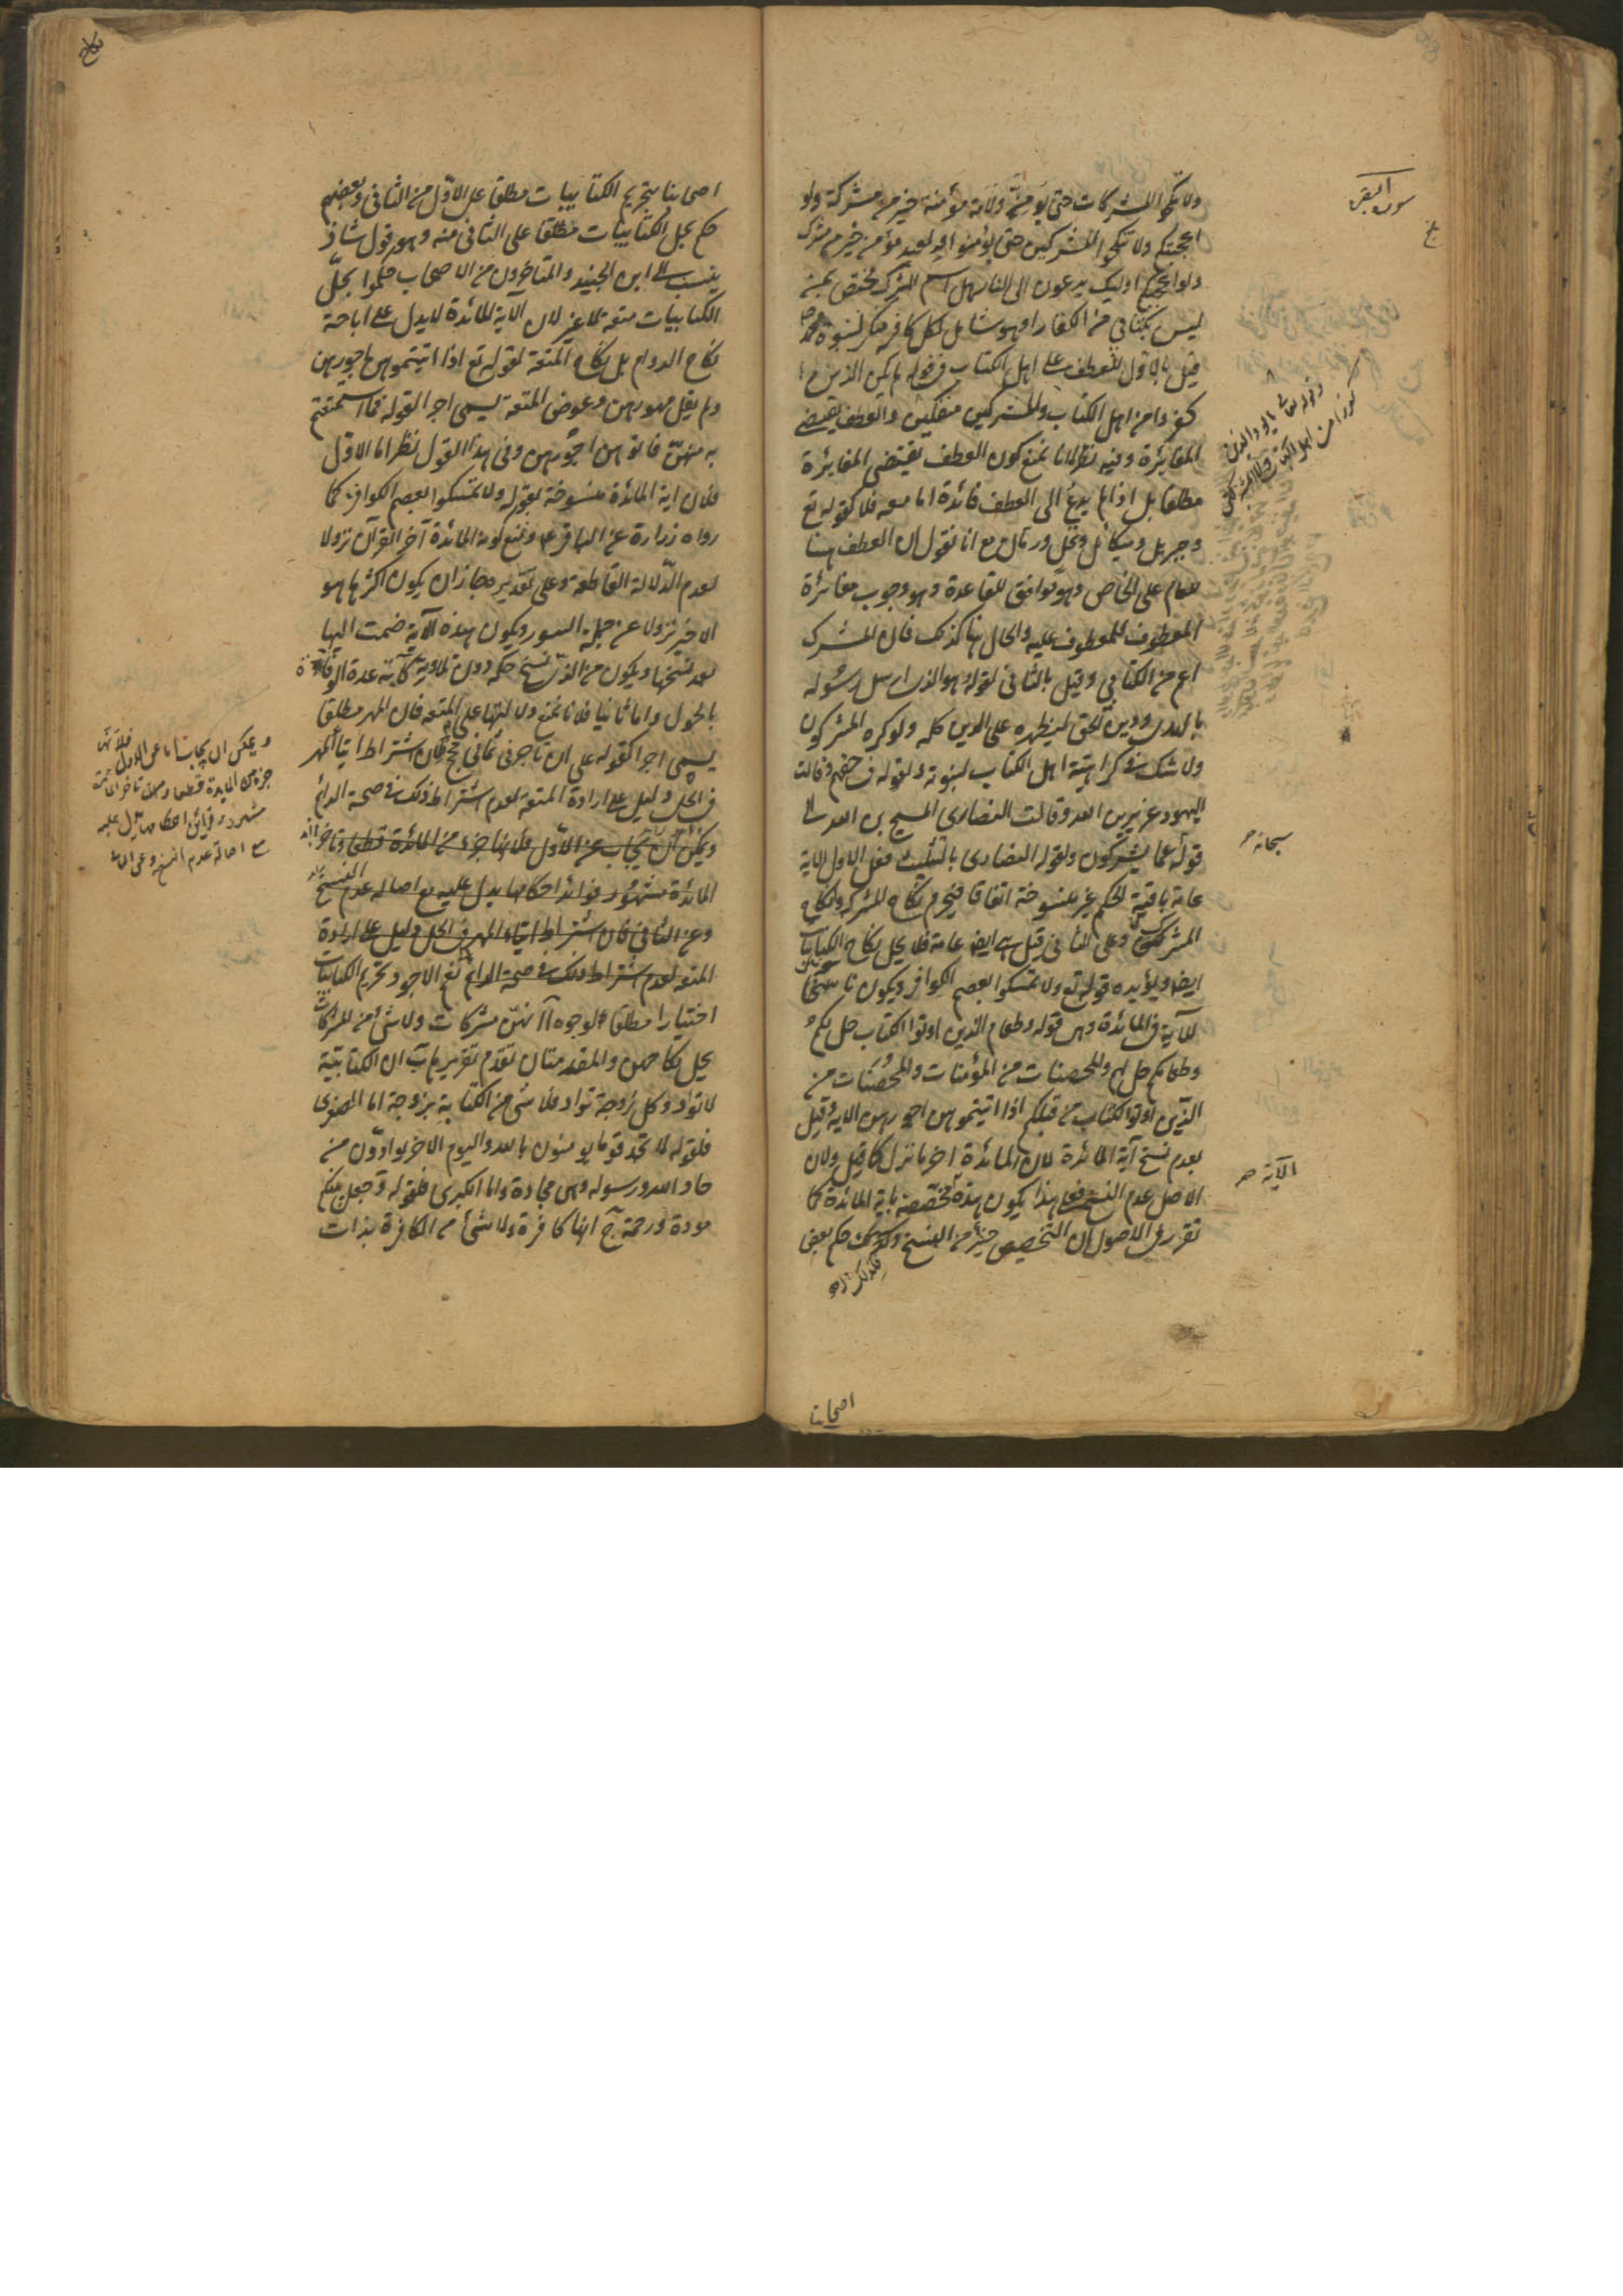 سورة البقرة
ولا تنكحوا المشركات حتى يؤمنّ ولامة مؤمنة خير من مشركة ولو
اعجبتكم ولا تنكحوا المشركين حتى يؤمنوا ولعبد مؤمن خير من مشرك
ولو اعجبكم اولئك يدعون الى النار هل اسم المشرك مختص بمن
ليس بكتابي من الكفار او هو شامل لكل كافر منكر لنبوة محمد ص
قيل بالاول للعطف على اهل الكتاب في قوله لم يكن الذين
كفروا من اهل الكتاب والمشركين منفكين والعطف يقتضي
المغايرة وفيه نظر لانا نمنع كون العطف يقتضي المغايرة
مطلقا بل اذا لم يدع الى العطف فائدة اما معه فلا كقوله تع
وجبريل وميكائل ونخل ورمان مع انا نقول ان العطف هنا
للعام على الخاص وهو موافق للقاعدة وهو وجوب مغائرة
المعطوف للمعطوف عليه والحال هنا كذلك فان المشرك
اعم من الكتابي وقيل بالثاني لقوله هو الذي ارسل رسوله
بالهدى ودين الحق ليظهره على الدين كله ولو كره المشركون
ولا شك في كراهية اهل الكتاب لنبوته ولقوله في حقهم وقالت
اليهود عزير بن الله وقالت النصارى المسيح بن الله الى
قوله عما يشركون ولقول النصارى بالتثليث فعلى الاول الاية
سبحانه
عامة باقية الحكم غير منسوخة اتفاقا فيحرم نكاح المشركة ونكاح
المشرك وعلى الثاني قيل هي ايضا عامة فلا يحل نكاح الكتابيات
ايضا ويؤيده قوله تع ولا تمسكوا بعصم الكوافر ويكون ناسخا
للآية في المائدة وهي قوله وطعام الذين اوتوا الكتاب حل لكم
وطعامكم حل لهم والمحصنات من المؤمنات والمحصنات من
الذين اوتوا الكتاب من قبلكم اذا اتيتموهن اجورهن الاية وقيل
بعدم نسخ آية المائدة لان المائدة اخر ما نزل كما قيل ولان
الاصل عدم النسخ فعلى هذا يكون هذه مخصصة باية المائدة كما
الآية
تقرر في الاصول ان التخصيص خير من النسخ حكم بعض
فلذلك
اصحابنا
اصحابنا بتحريم الكتابيات مطلقا على الاول من الثاني وبعضهم
حكم بحل الكتابيات مطلقا على الثاني منه وهو قول شاذ
ينسب الى ابن الجنيد والمتاخرون من الاصحاب حكموا بحلّ
الكتابيات متعة لا غير لان الآية المائدة لا يدل على اباحة
نكاح الدوام بل نكاح المتعة لقوله تع اذا اتيتموهن اجورهن
ولم يقل مهورهن وعوض المتعة يسمى اجرا لقوله فما استمتعتم
به منهن فاتوهن اجورهن وفي هذا القول نظر اما الاول
فلان اية المائدة منسوخة بقوله ولا تمسكوا بعصم الكوافر كما
رواه زرارة عن الباقر ع ونمنع كون المائدة آخر القرآن نزولا
لعدم الدلالة القاطعة وعلى تقديره فجاز ان يكون اكثرها هو
الاخير نزولا عن جملة السور ويكون هذه الآية ضمت اليها
بعد نسخها ويكون من الذي نسخ حكمه دون تلاوته كآية عدة الوفاة
بالحول واما ثانيا فلانا نمنع دلالتها على المتعة فان المهر مطلقا
يسمى اجرا كقوله على ان تاجرني ثماني حجج فان اشتراط ايتاء المهر
في الحل دليل على ارادة المتعة لعدم اشتراط ذلك في صحة الدائم
ويمكن ان يجاب عن الاول فلانها جزء من المائدة قطعا وتاخر
المائدة مشهور وفوائد احكامها يدل عليه مع اصالة عدم النسخ
وعن الثاني فان اشتراط ايتاء المهر في الحل دليل على ارادة
المتعة لعدم اشتراط ذلك في صحة الدائم نعم الاجود تحريم الكتابيات
اختيارا مطلقا لوجوه آ انهن مشركات ولا شيء من المشركات
يحل نكاحهن والمقدمتان تقدم تقريرهما ب ان الكتابية
لا تواد وكل زوجة تواد فلا شيء من الكتابية بزوجة اما الصغرى
فلقوله لا تجد قوما يؤمنون بالله واليوم الاخر يوادون من
حاد الله ورسوله وهي محادة واما الكبرى فلقوله وجعل بينكم
مودة ورحمة ج انها كافرة ولا شيء من الكافرة بذات
ويمكن ان يجاب اما عن الاول فلانها
جزء من المائدة قطعا وتاخر المائدة
مشهور احكامها يدل عليه
مع اصالة عدم النسخ وعن الثاني